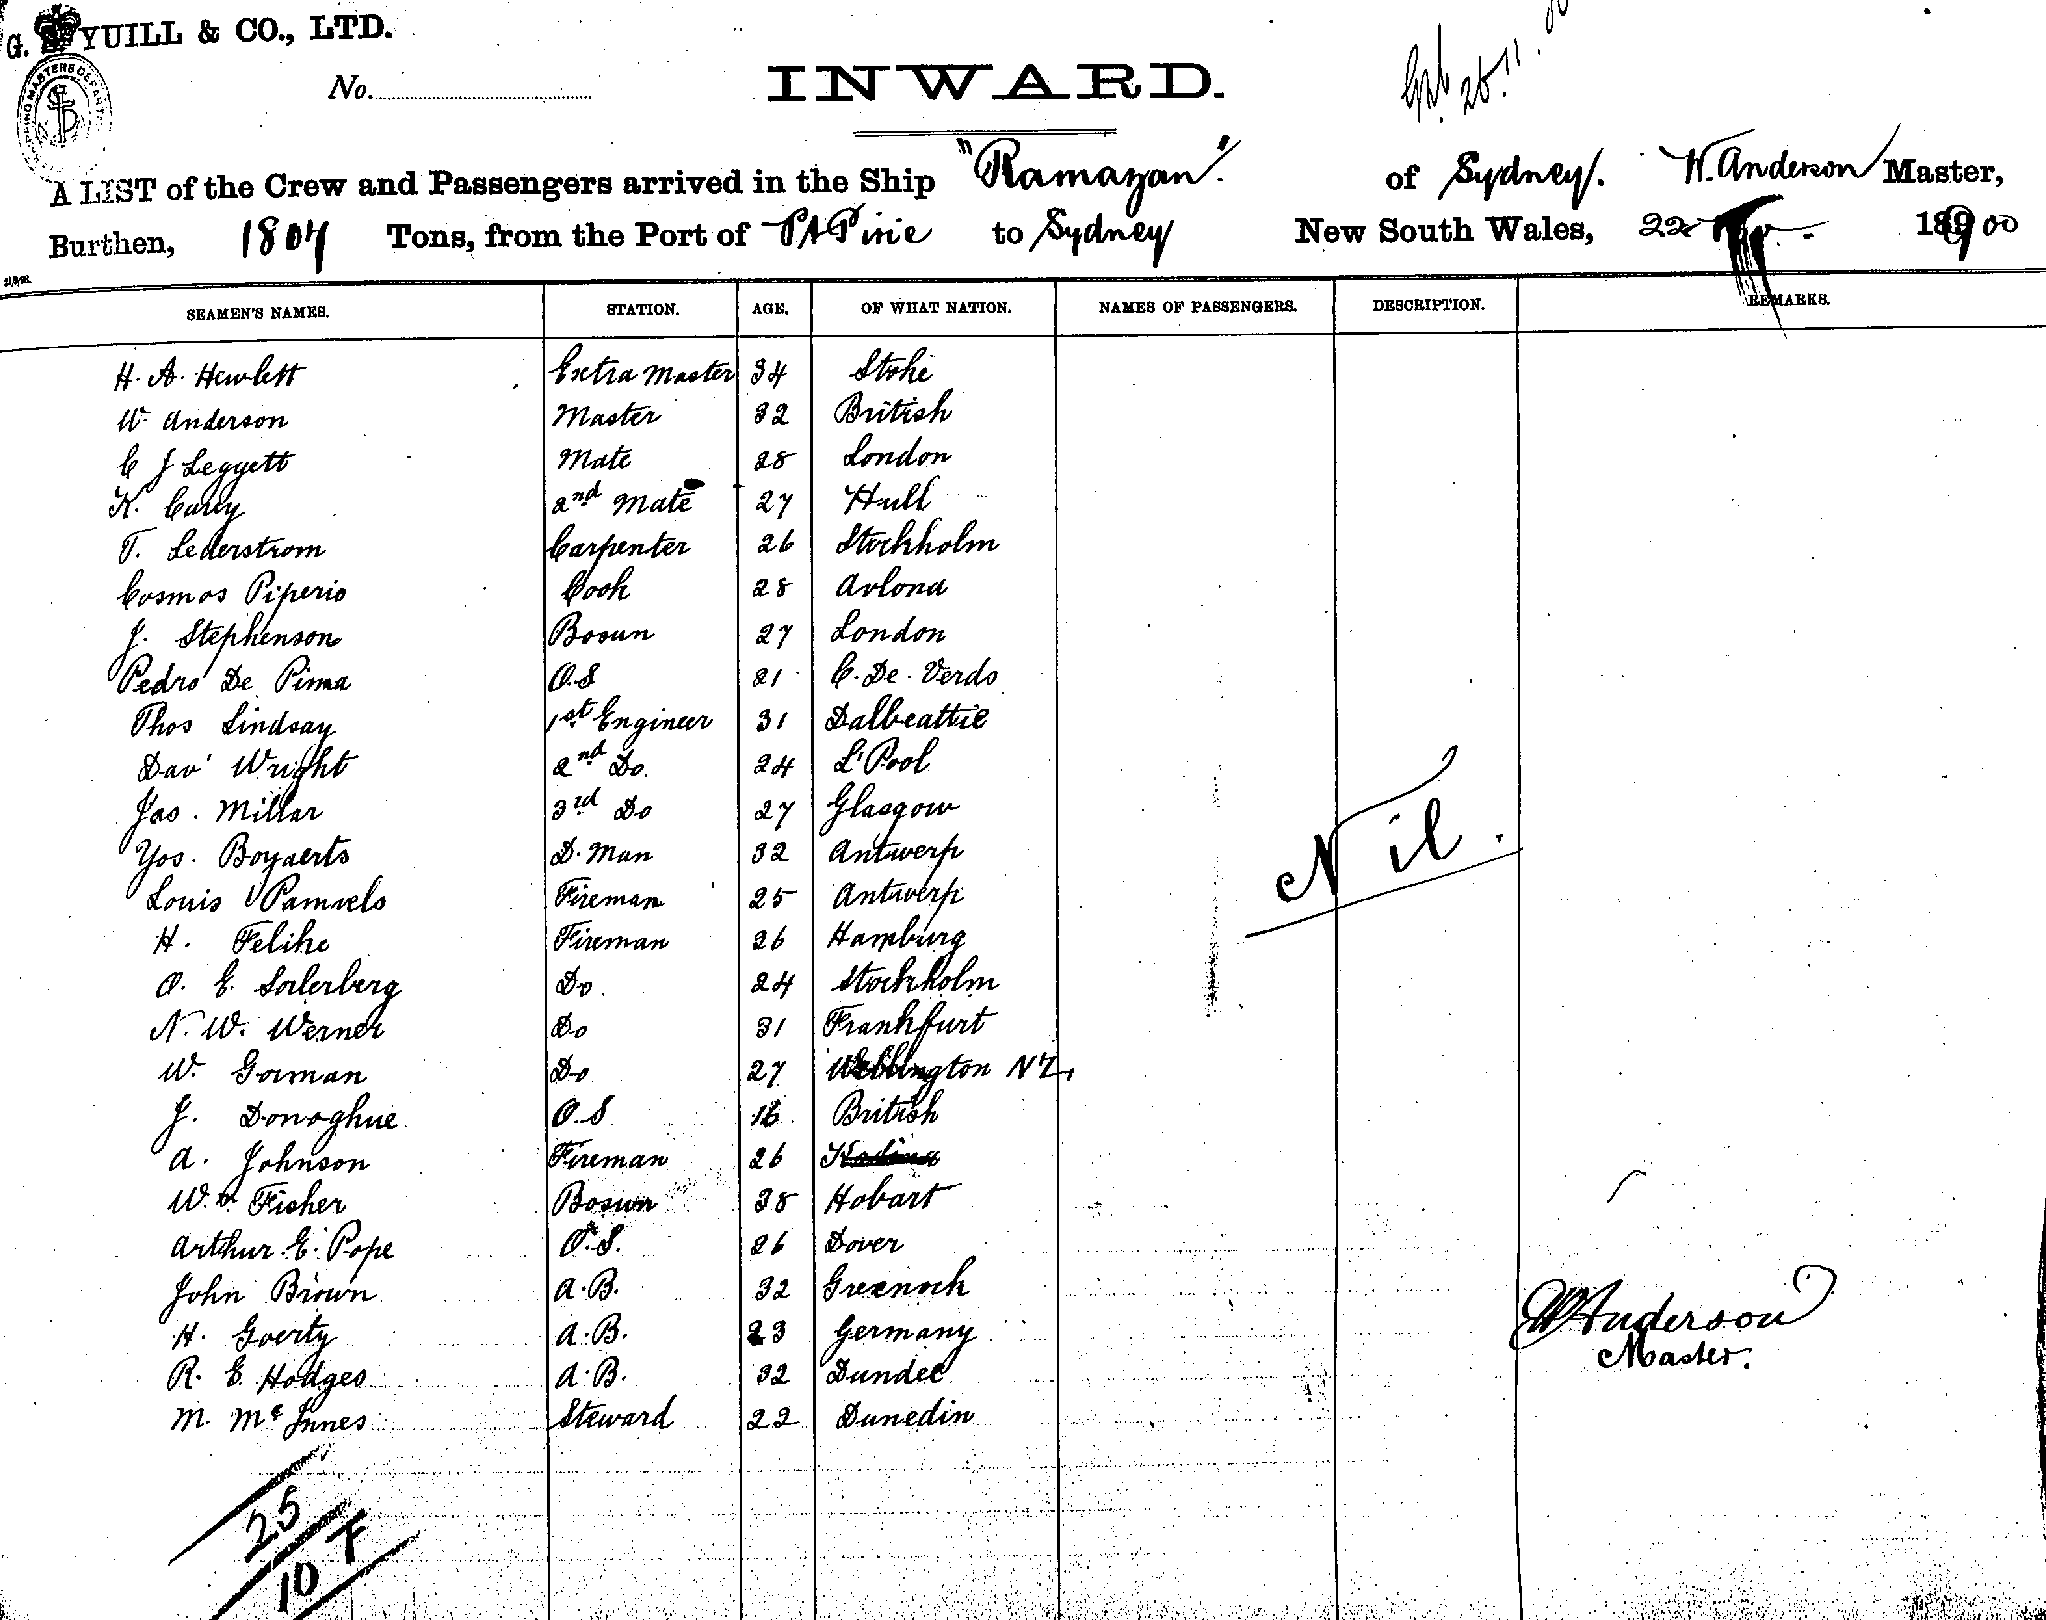 G. S. YUILL & CO., LTD.
No.
INWARD.
A LIST of the Crew and Passengers arrived in the Ship "Ramazan". of Sydney. W. Anderson Master,
Burthen, 1804 Tons, from the Port of Pt Pirie to Sydney New South Wales, 22 1900
SEAMEN'S NAMES. STATION. AGE. OF WHAT NATION. NAMES OF PASSENGERS. DESCRIPTION. REMARKS.
H. A. Hewlett Extra Master 34 Stoke
W. Anderson Master 32 British
C J Leggett Mate 28 London
K. Carey 2nd Mate 27 Hull
T. Lederstrom Carpenter 26 Stockholm
Cosmos Piperio Cook 28 Avlona
J. Stephenson Bosun 27 London
Pedro De Pinna O.S 21 C. De. Verds
Thos Lindsay 1st Engineer 31 Dalbeattie
Dav' Wright 2nd Do. 24 L'Pool
Jas. Millar 3rd Do 27 Glasgow
Jos. Boyaerts D. Man 32 Antwerp
Louis Pamuels Fireman 25 Antwerp
H. Felike Fireman 26 Hamburg
O. E. Soderberg Do. 24 Stockholm
N. W. Werner Do 31 Frankfurt
W. Gorman Do 27 Wellington NZ,
J. Donoghue O.S 16 British
A. Johnson Fireman 26
W. Fisher Bosun 38 Hobart
Arthur. E. Pope O.S. 26 Dover
John Brown A.B. 32 Greenock
H. Goerty A.B. 23 Germany
R. E Hodges A.B. 32 Dundee
M. McInnes Steward 22 Dunedin
Nil.
W Anderson
Master.
25
10 F